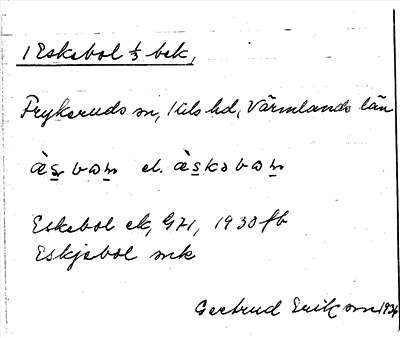 1 Eskebol 1/3 bek,
Frykeruds sn, Kils hd, Värmlands län
el.
Eskebol ek, G71, 1930 fb
Eskjebol mk
Gertrud Erikson 1934